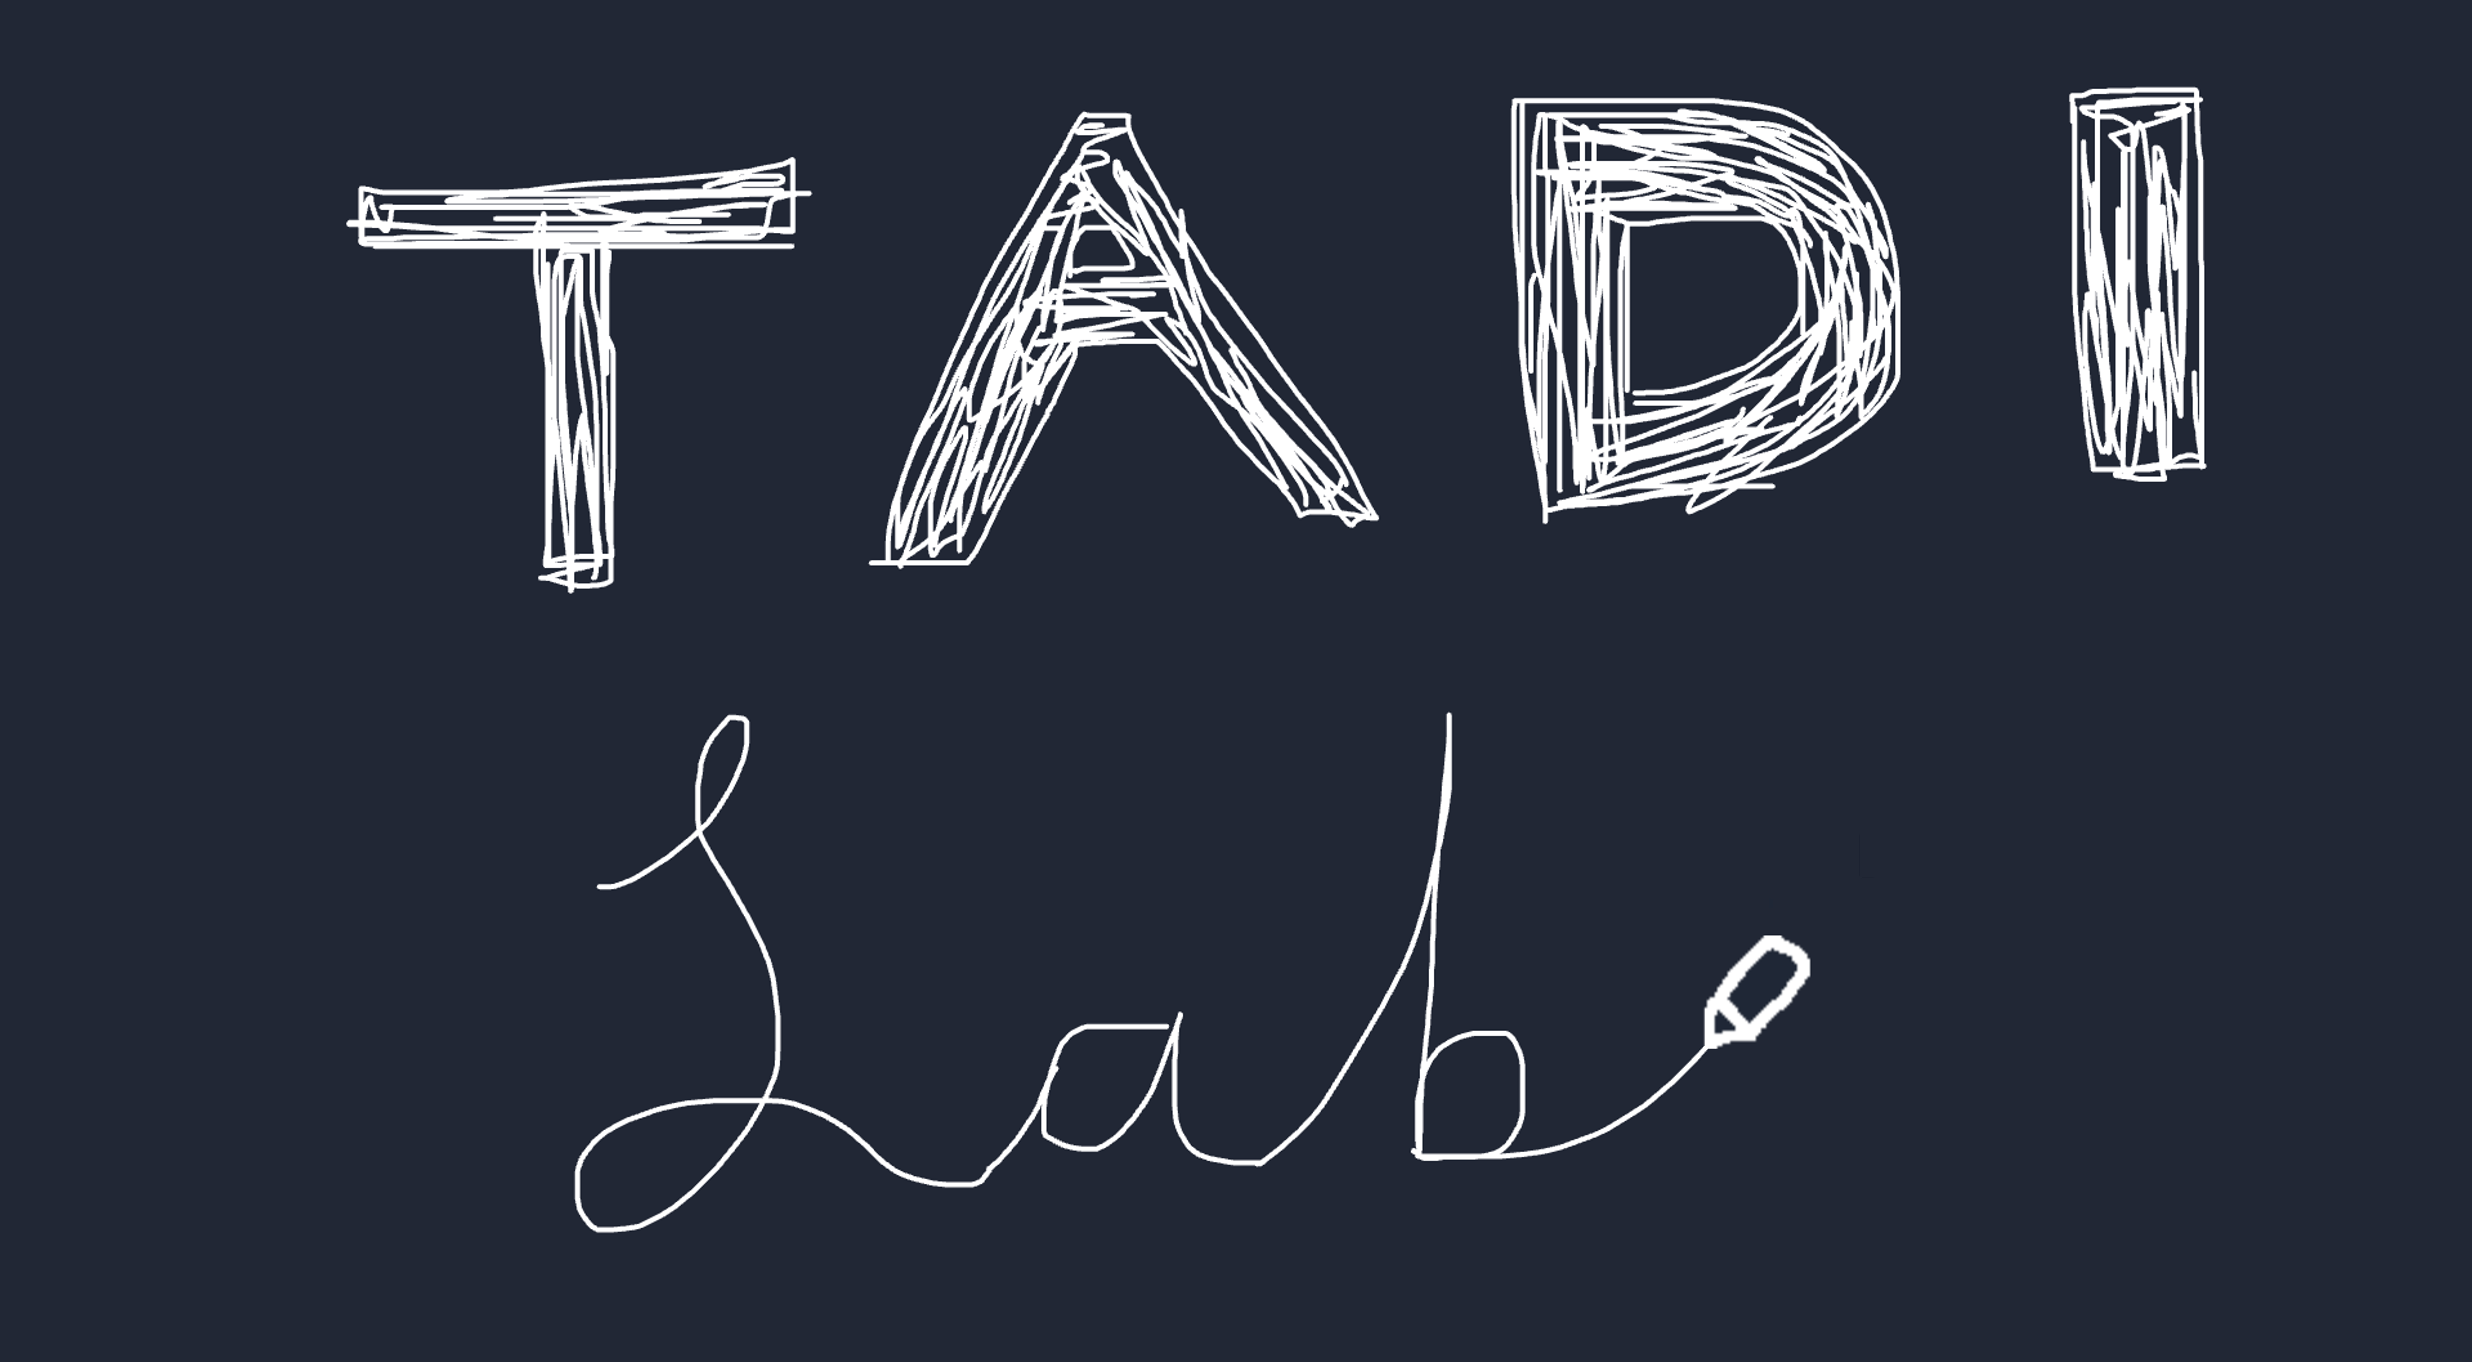 TADI
Lab